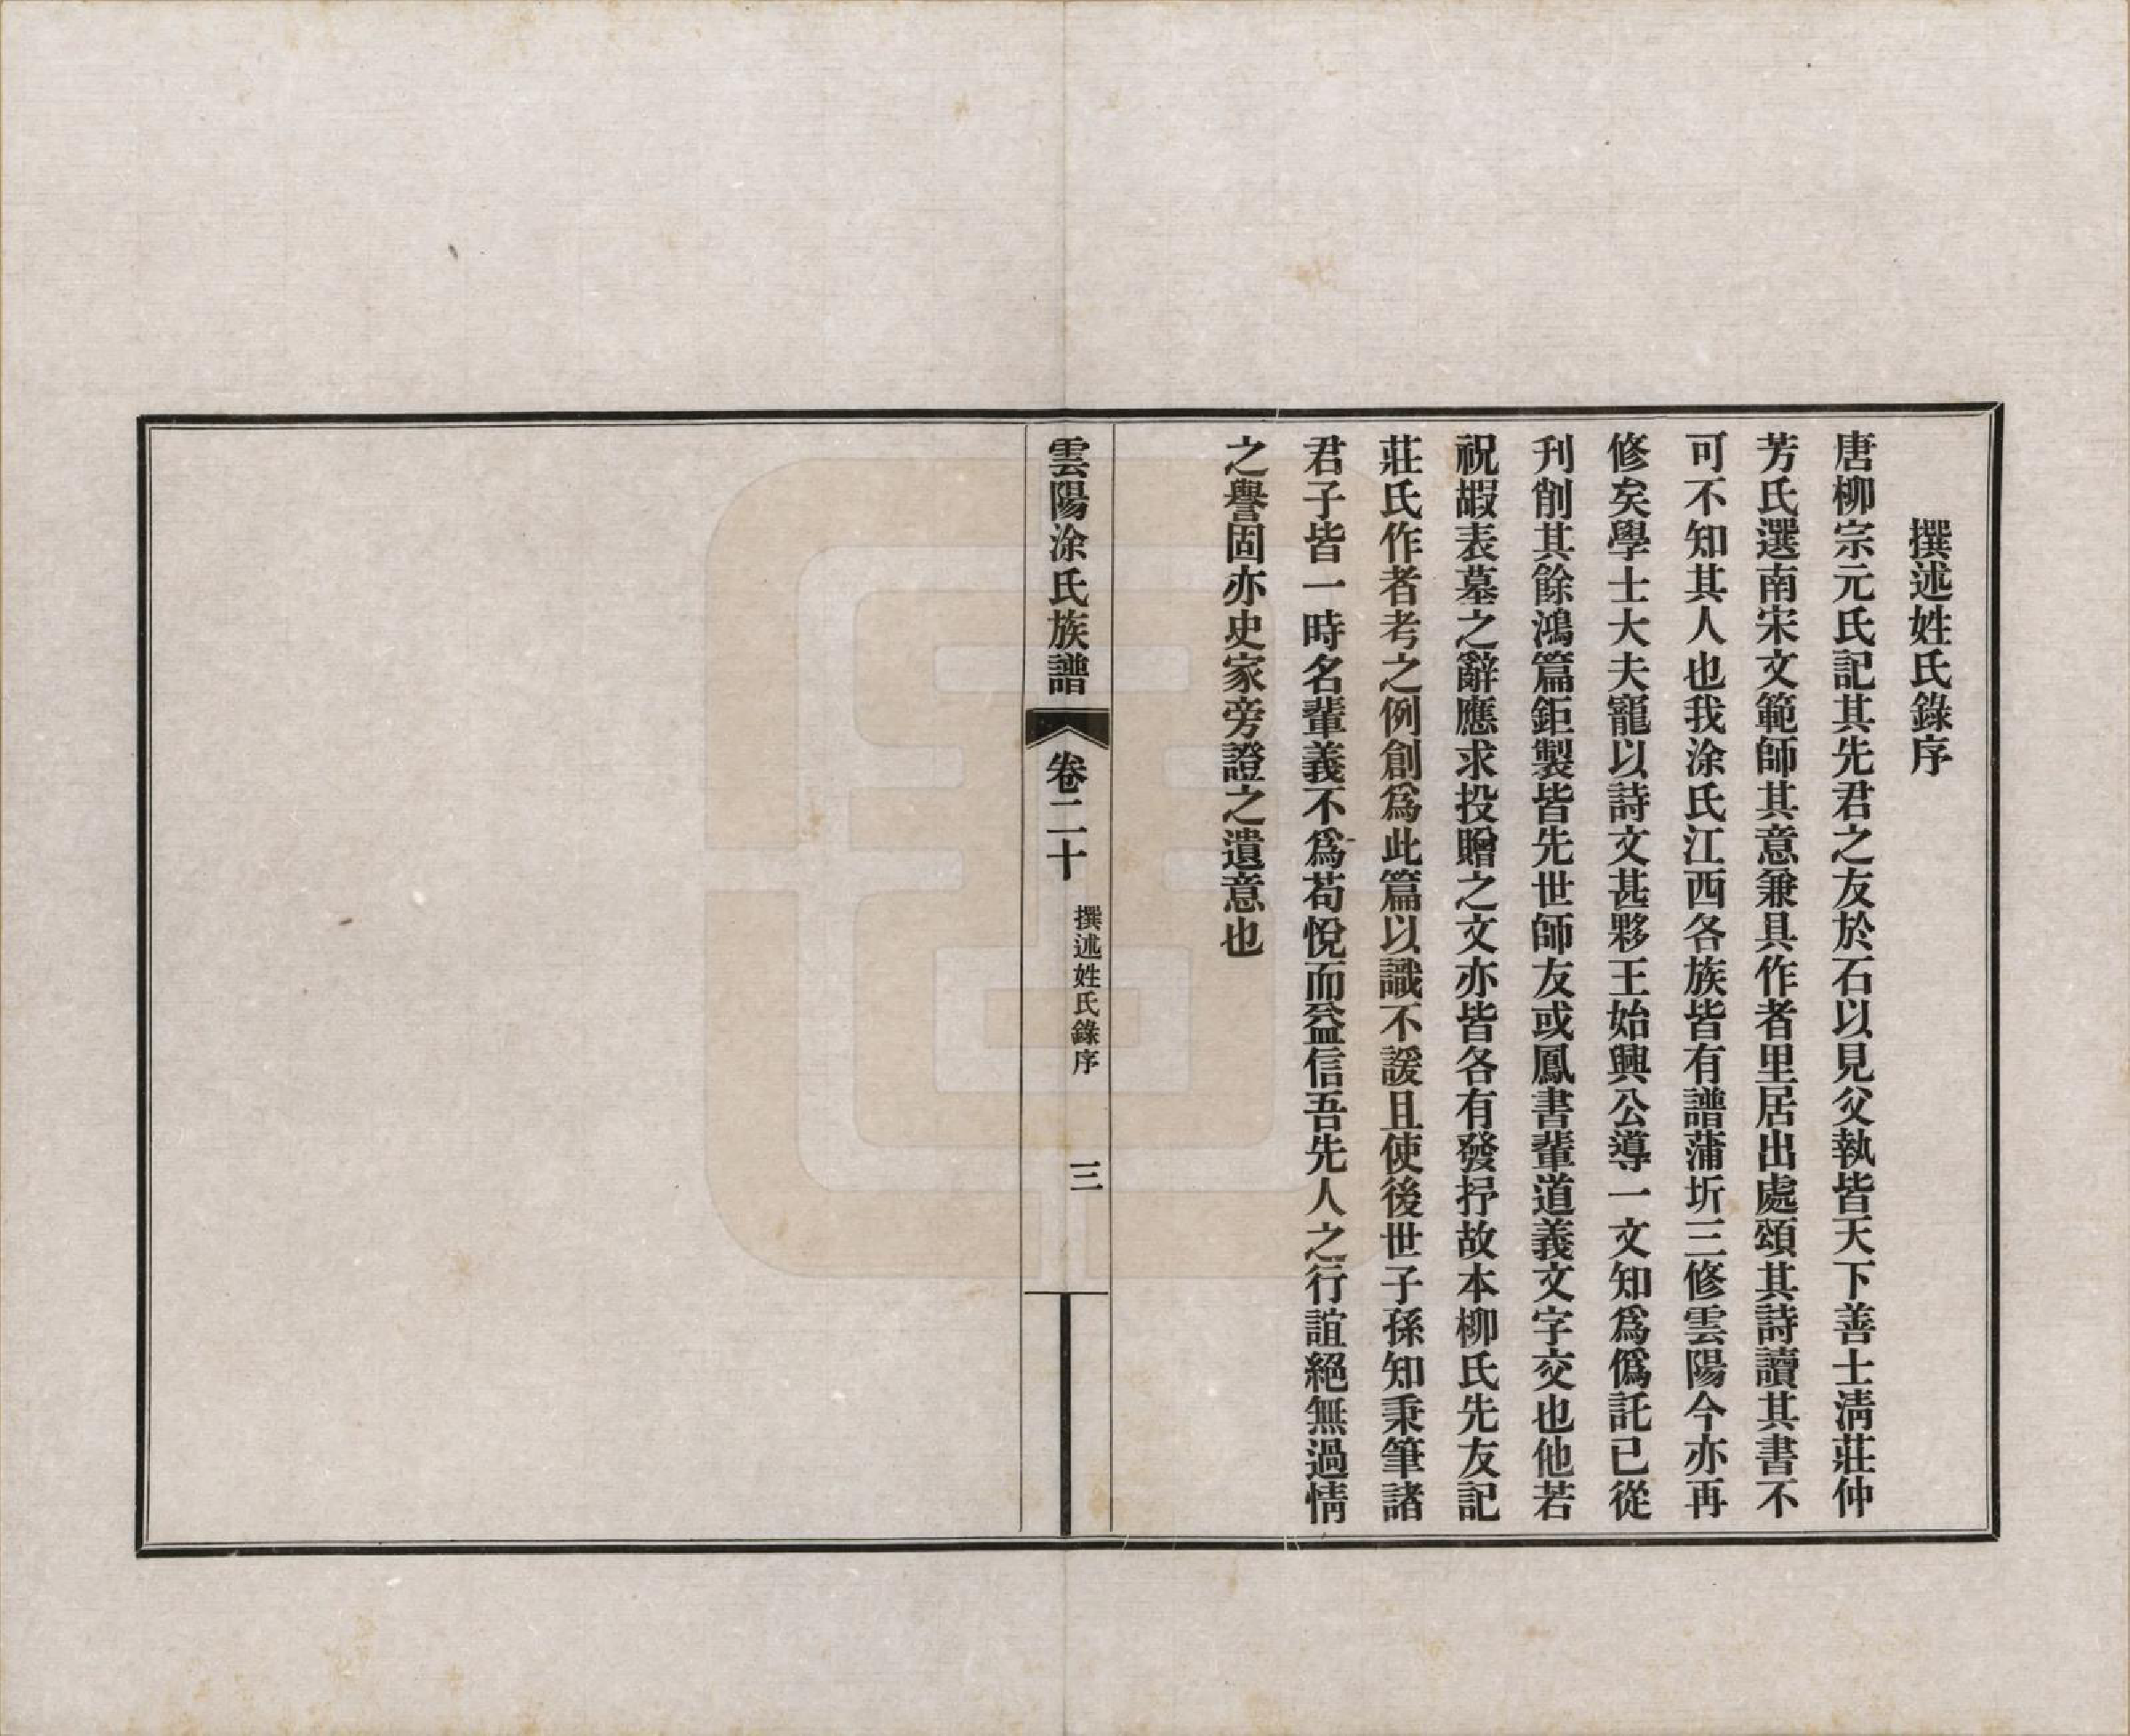 撰述姓氏錄序
唐柳宗元氏記其先君之友於石以見父執皆天下善士淸莊仲
芳氏選南宋文範師其意兼具作者里居出處頌其詩讀其書不
可不知其人也我涂氏江西各族皆有譜蒲圻三修雲陽今亦再
修矣學士大夫寵以詩文甚夥王始興公導一文知爲僞託已從
刋削其餘鴻篇鉅製皆先世師友或鳳書輩道義文字交也他若
祝嘏表墓之辭應求投贈之文亦皆各有發抒故本柳氏先友記
莊氏作者考之例創爲此篇以識不諼且使後世子孫知秉筆諸
君子皆一時名輩義不爲苟悅而益信吾先人之行誼絕無過情
之譽固亦史家旁證之遺意也
雲陽涂氏族譜
卷二十
撰述姓氏錄序
三